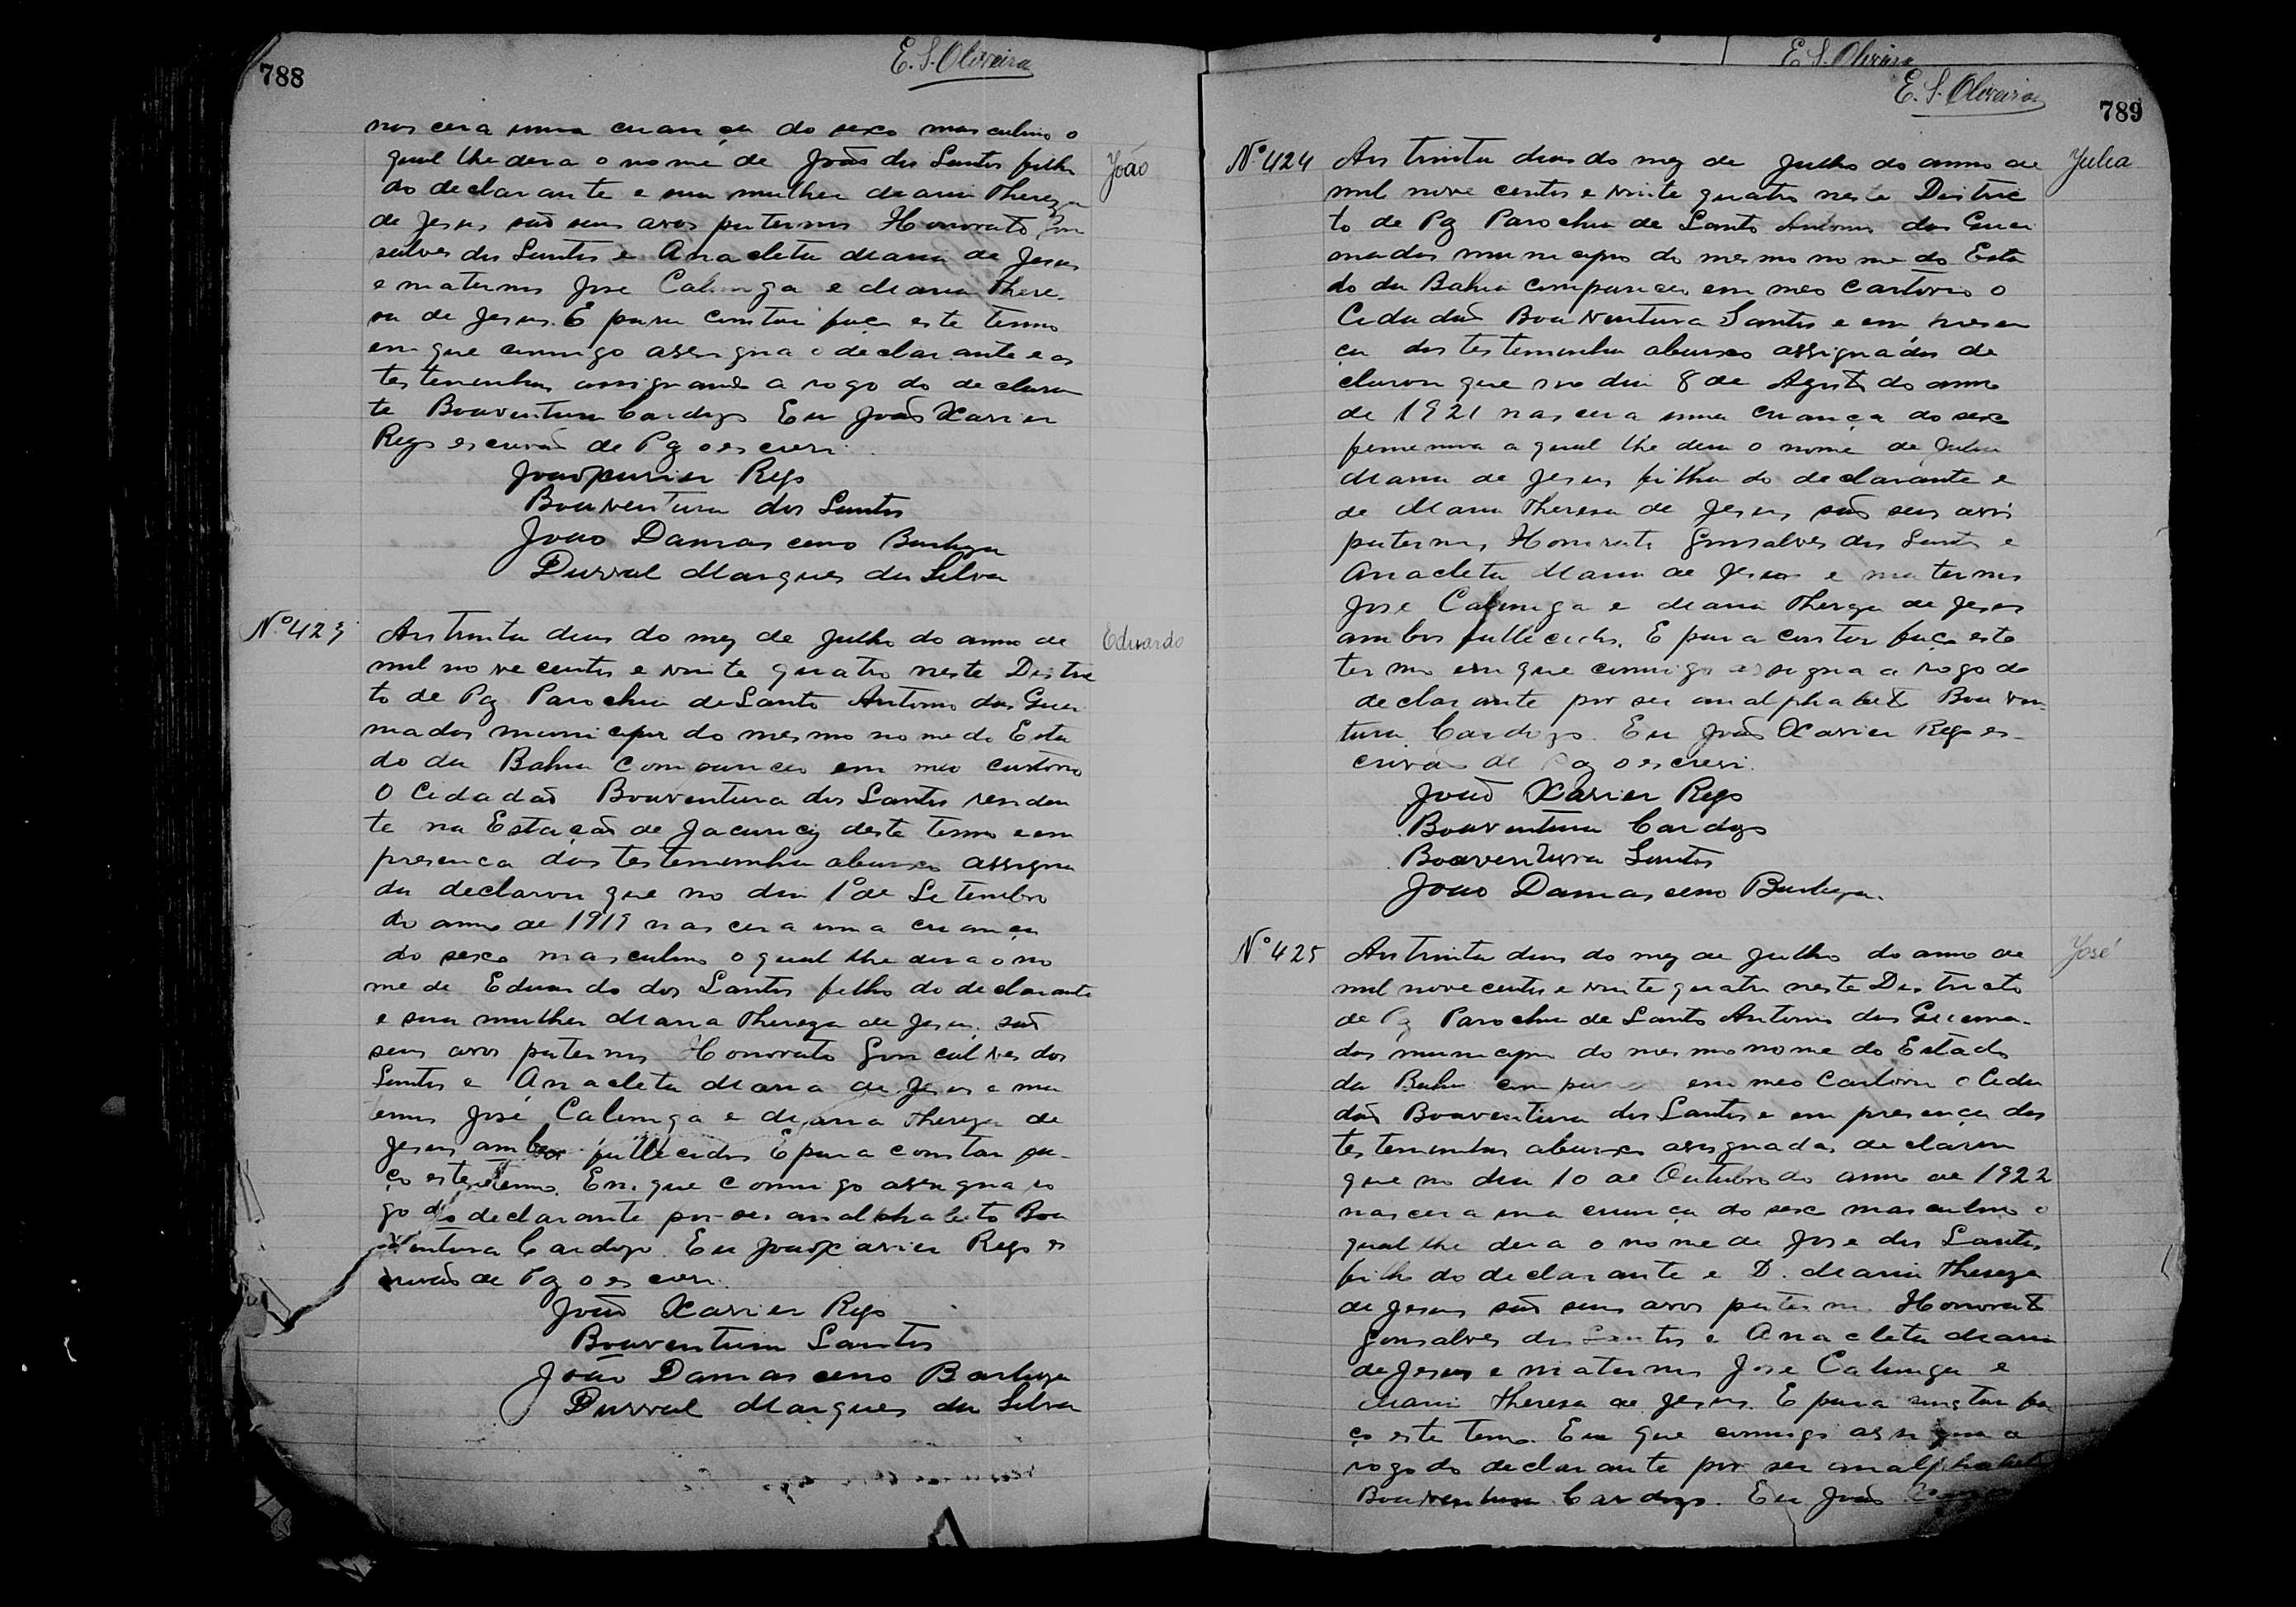 788
E. S. Oliveira
nascera uma criança do sexo masculino o
qual lhe dera o nome de João dos Santos filho
João
do declarante e sua mulher Maria Thereza
de Jesus são seus avos paternos Honorato Gon
salves dos Santos e Anacleta Maria de Jesus
e maternos Jose Calunga e Maria There-
sa de Jesus. E para constar faço este termo
em que commigo assigna o declarante e as
testemunhas assignando a rogo do declaran
te Boaventura Cardozo Eu João Xavier
Rego escrivão de Pz o escrevi.
João Xavier Rego
Boaventura dos Santos
João Damasceno Barboza
Durval Marques da Silva
Nº 423
Aos trinta dias do mez de Julho do anno de
Eduardo
mil nove centos e vinte quatro neste Distric
to de Pz Parochia de Santo Antonio das Quei
madas municipio do mesmo nome do Esta
do da Bahia compareceu em meo cartorio
O Cidadão Boaventura dos Santos residen
te na Estação de Jacuricy deste termo e em
presença das testemunha abaixo assigna
da declarou que no dia 1º de Setembro
do anno de 1919 nascera uma criança
do sexo masculino o qual lhe dera o no
me de Eduardo dos Santos filho do declarante
e sua mulher Maria Thereza de Jesus são
seus avos paternos Honorato Goncalves dos
Santos e Anacleta Maria de Jesus e ma
ternos José Calunga e Maria Thereza de
Jesus ambos fallecidos E para constar fa-
ço este termo. Em que commigo assigna ro
go do declarante por ser analphabeto Boa
ventura Cardozo. Eu João Xavier Rego es
crivão de Pz o escrevi.
João Xavier Rego
Boaventura Santos
João Damasceno Barboza
Durval Marques da Silva
E. S. Oliveira
E. S. Oliveira
789
Nº 424
Aos trinta dias do mez de Julho do anno de
Julia
mil nove centos e vinte quatro neste Distric
to de Pz Parochia de Santo Antonio das Quei
madas municipio do mesmo nome do Esta
do da Bahia compareceu em meo cartorio o
Cidadão Boaventura Santos e em presen
ça das testemunha abaixo assignadas de
clarou que no dia 8 de Agosto do anno
de 1921 nascera uma criança do sexo
femenina a qual lhe deu o nome de Julia
Maria de Jesus filha do declarante e
de Maria Theresa de Jesus são seus avós
paternos Honorato Gonsalves dos Santos e
Anacleta Maria de Jesus e maternos
Jose Calunga e Maria Thereza de Jesus
ambos fallecidos. E para constar faço este
termo em que commigo assigna a rogo do
declarante por ser analphabeto Boaven-
tura Cardozo. Eu João Xavier Rego es-
crivão de Pz o escrevi.
João Xavier Rego
Boaventura Cardozo
Boaventura Santos
João Damasceno Barboza.
Nº 425
Aos trinta dias do mez de Julho do anno de
José
mil nove centos e vinte quatro neste Districto
de Pz Parochia de Santo Antonio das Queima-
das municipio do mesmo nome do Estado
da Bahia compareceu em meo Cartorio o Cida
dão Boaventura dos Santos e em presença das
testemunhas abaixo assignadas declarou
que no dia 10 de Outubro do anno de 1922
nascera uma criança do sexo masculino o
qual lhe dera o nome de Jose dos Santos
filho do declarante e D. Maria Thereza
de Jesus são seus avos paternos Honorato
Gonsalves dos Santos e Anacleta Maria
de Jesus e maternos Jose Calunga e
Maria Theresa de Jesus. E para constar fa
ço este termo. Em que commigo assigna a
rogo do declarante por ser analphabeto
Boaventura Cardozo. Eu João